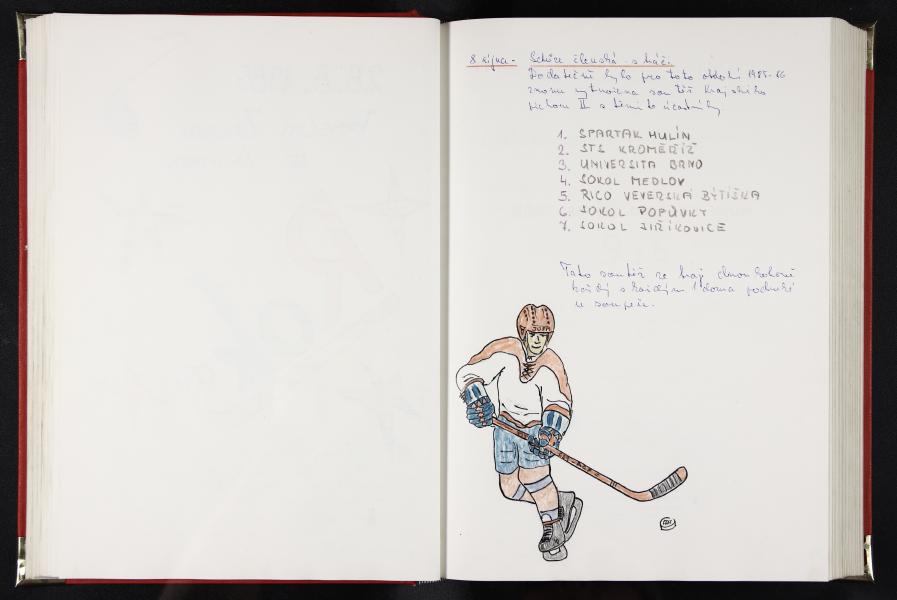 8. října - Schůze členská - s hráči.
Dodatečně bylo pro toto období 1985-86
znovu vytvořena soutěž Krajského
přeboru II s těmito účastníky
1. SPARTAK HULÍN
2. STS KROMĚŘÍŽ
3. UNIVERSITA BRNO
4. SOKOL MEDLOV
5. RICO VEVERSKÁ BÝTÍŠKA
6. SOKOL POPŮVKY
7. SOKOL JIŘÍKOVICE
Tato soutěž se hraje dvoukolově
každý s každým 1 doma podruhé
u soupeře.
JOFA